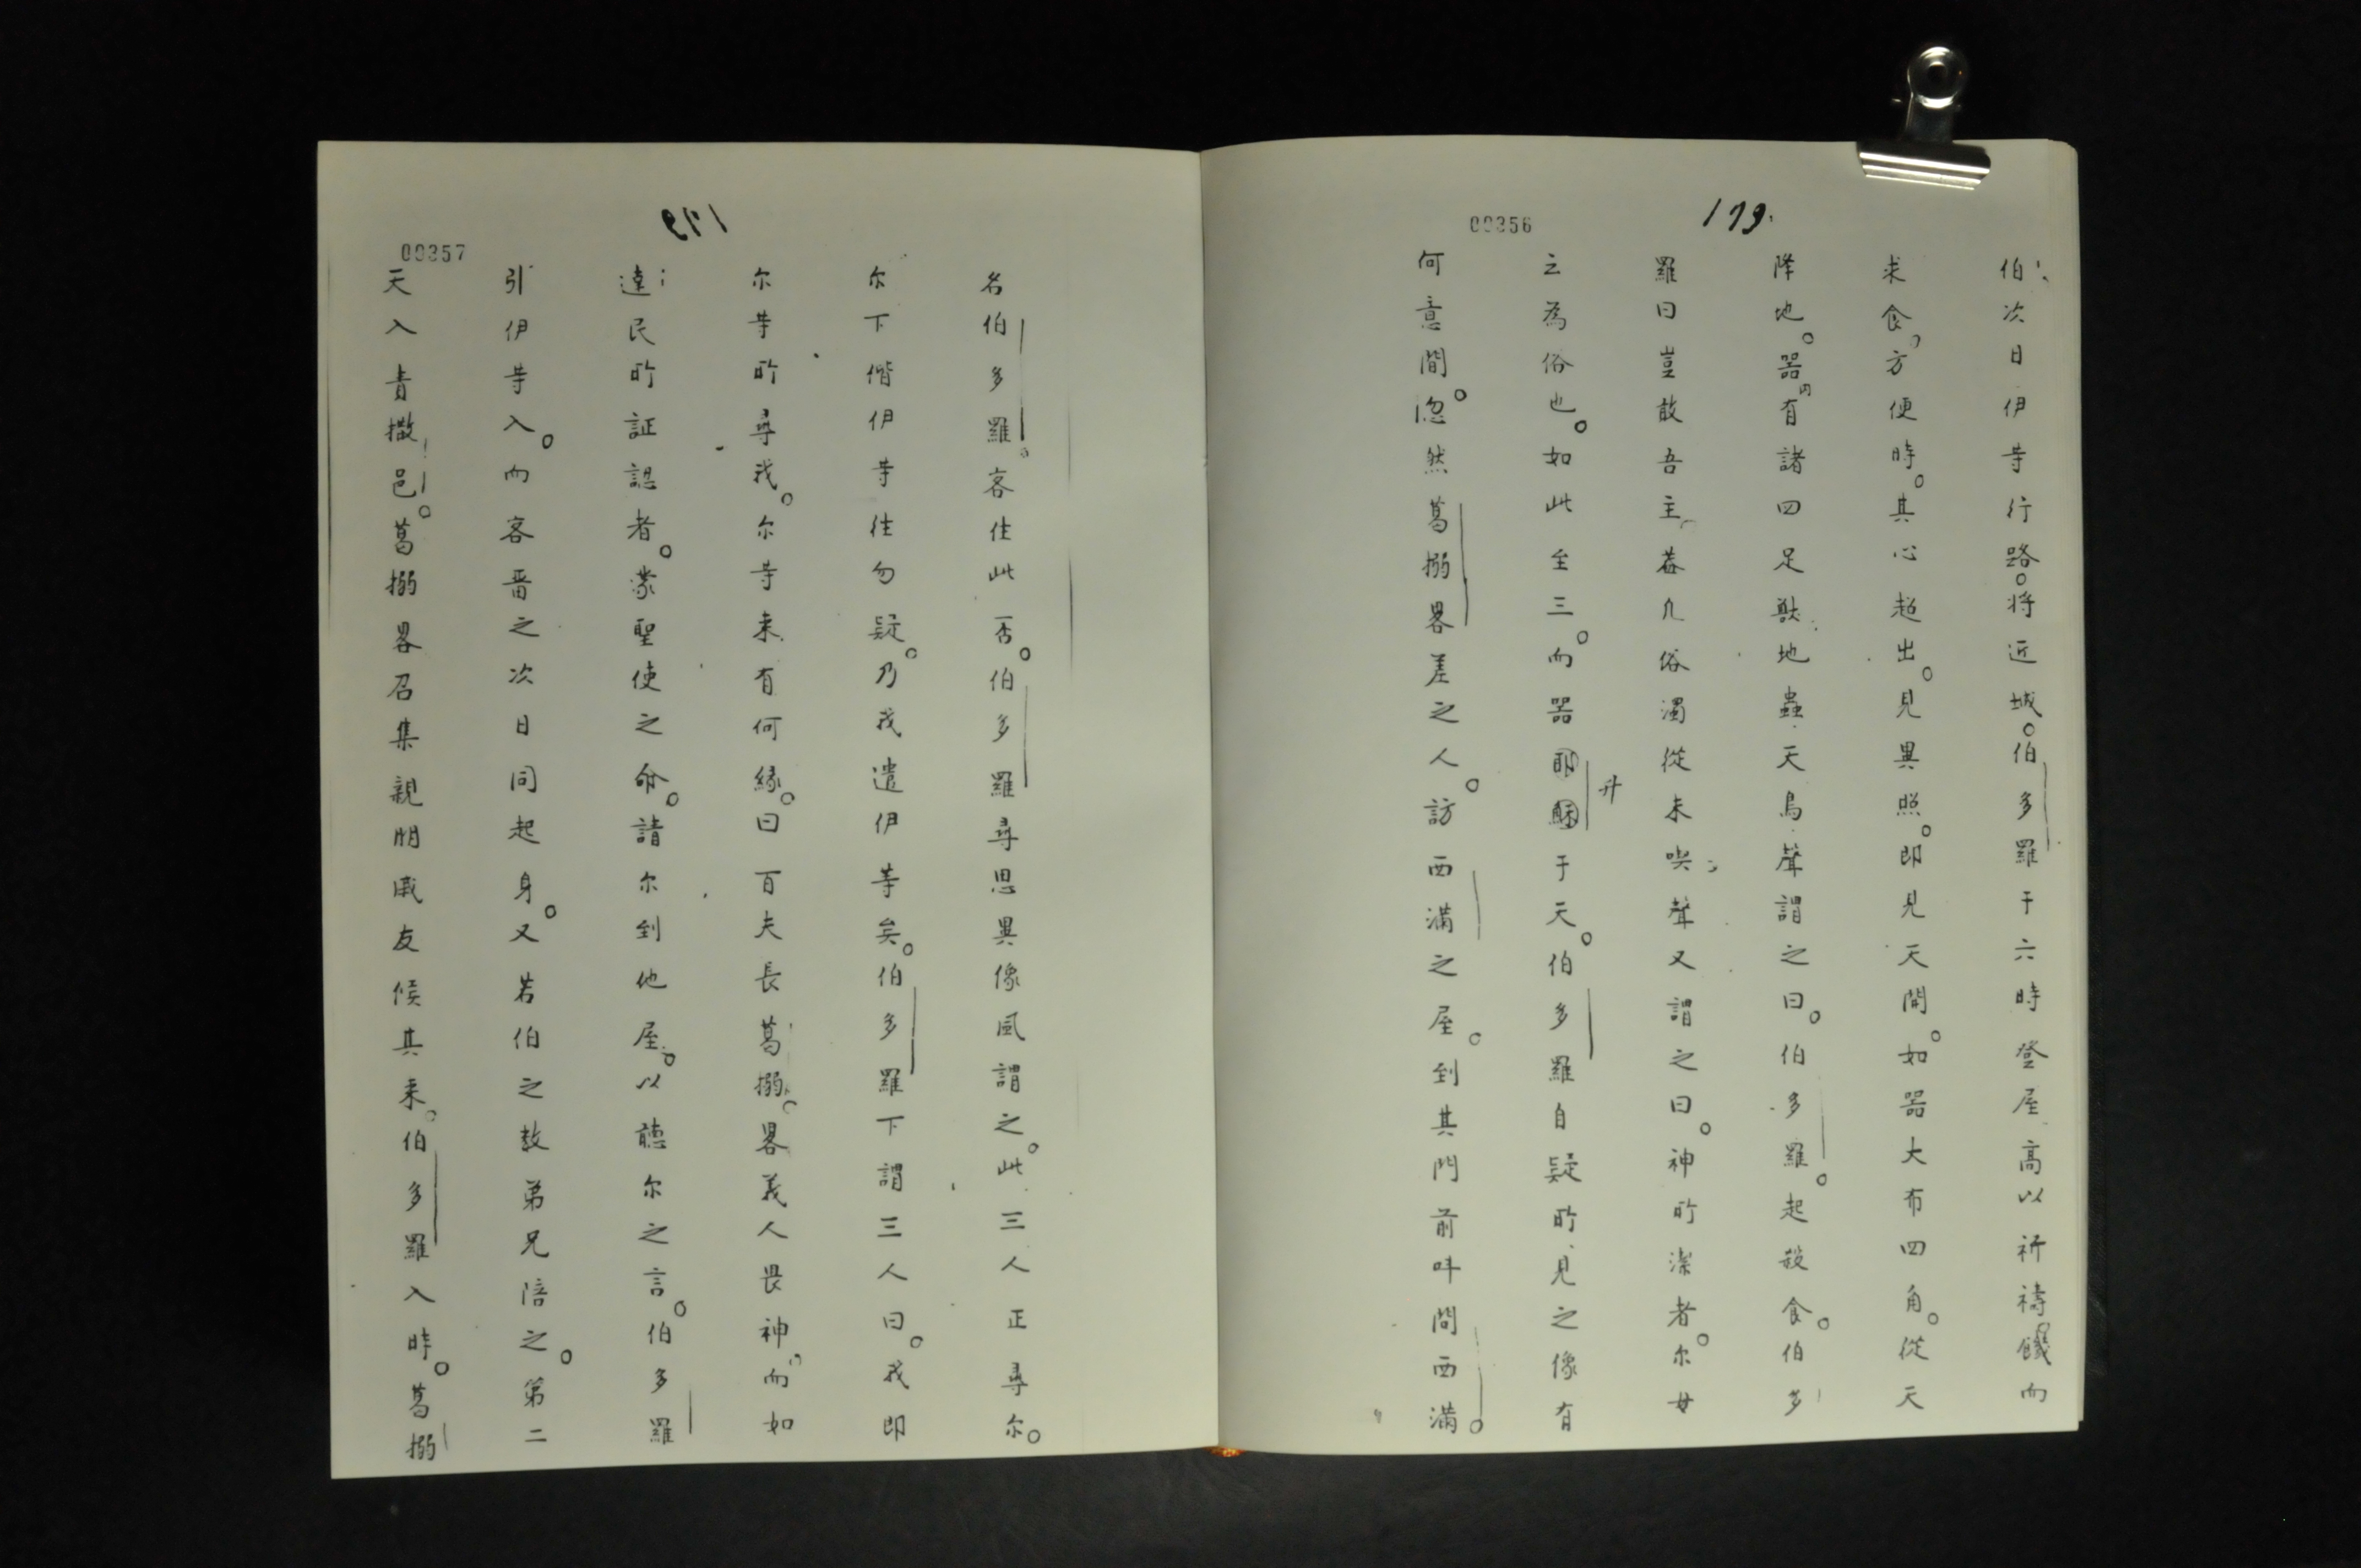 00356
179.
伯次日伊等行路。将近城。伯多羅于六時登屋高以祈禱。饑而
求食。方便時。其心超出。見異照。即見天開。如器大布四角。從天
降地。器内有諸四足獣地蟲天鳥聲謂之曰。伯多羅。起殺食。伯多
羅曰豈敢吾主。蓋凡俗濁從未喫聲又謂之曰。神所潔者。尔毋
之為俗也。如此至三。而器升于天。伯多羅自疑所見之像有
何意間。忽然葛搦畧差之人。訪西滿之屋。到其門前呌問西滿。
179
00357
名伯多羅。客住此否。伯多羅尋思異像風謂之。此三人正尋尔。
尔下偕伊等往勿疑。乃我遣伊等矣。伯多羅下謂三人曰。我即
尔等所尋我。尔等来有何緣。曰百夫長葛搦。畧義人畏神。而如
達民所証認者。蒙聖使之命。請尔到他屋。以聽尔之言。伯多羅
引伊等入。而客畱之次日同起身。又若伯之数弟兄陪之。第二
天入責撒邑。葛搦畧召集親朋戚友候其来。伯多羅入時。葛搦